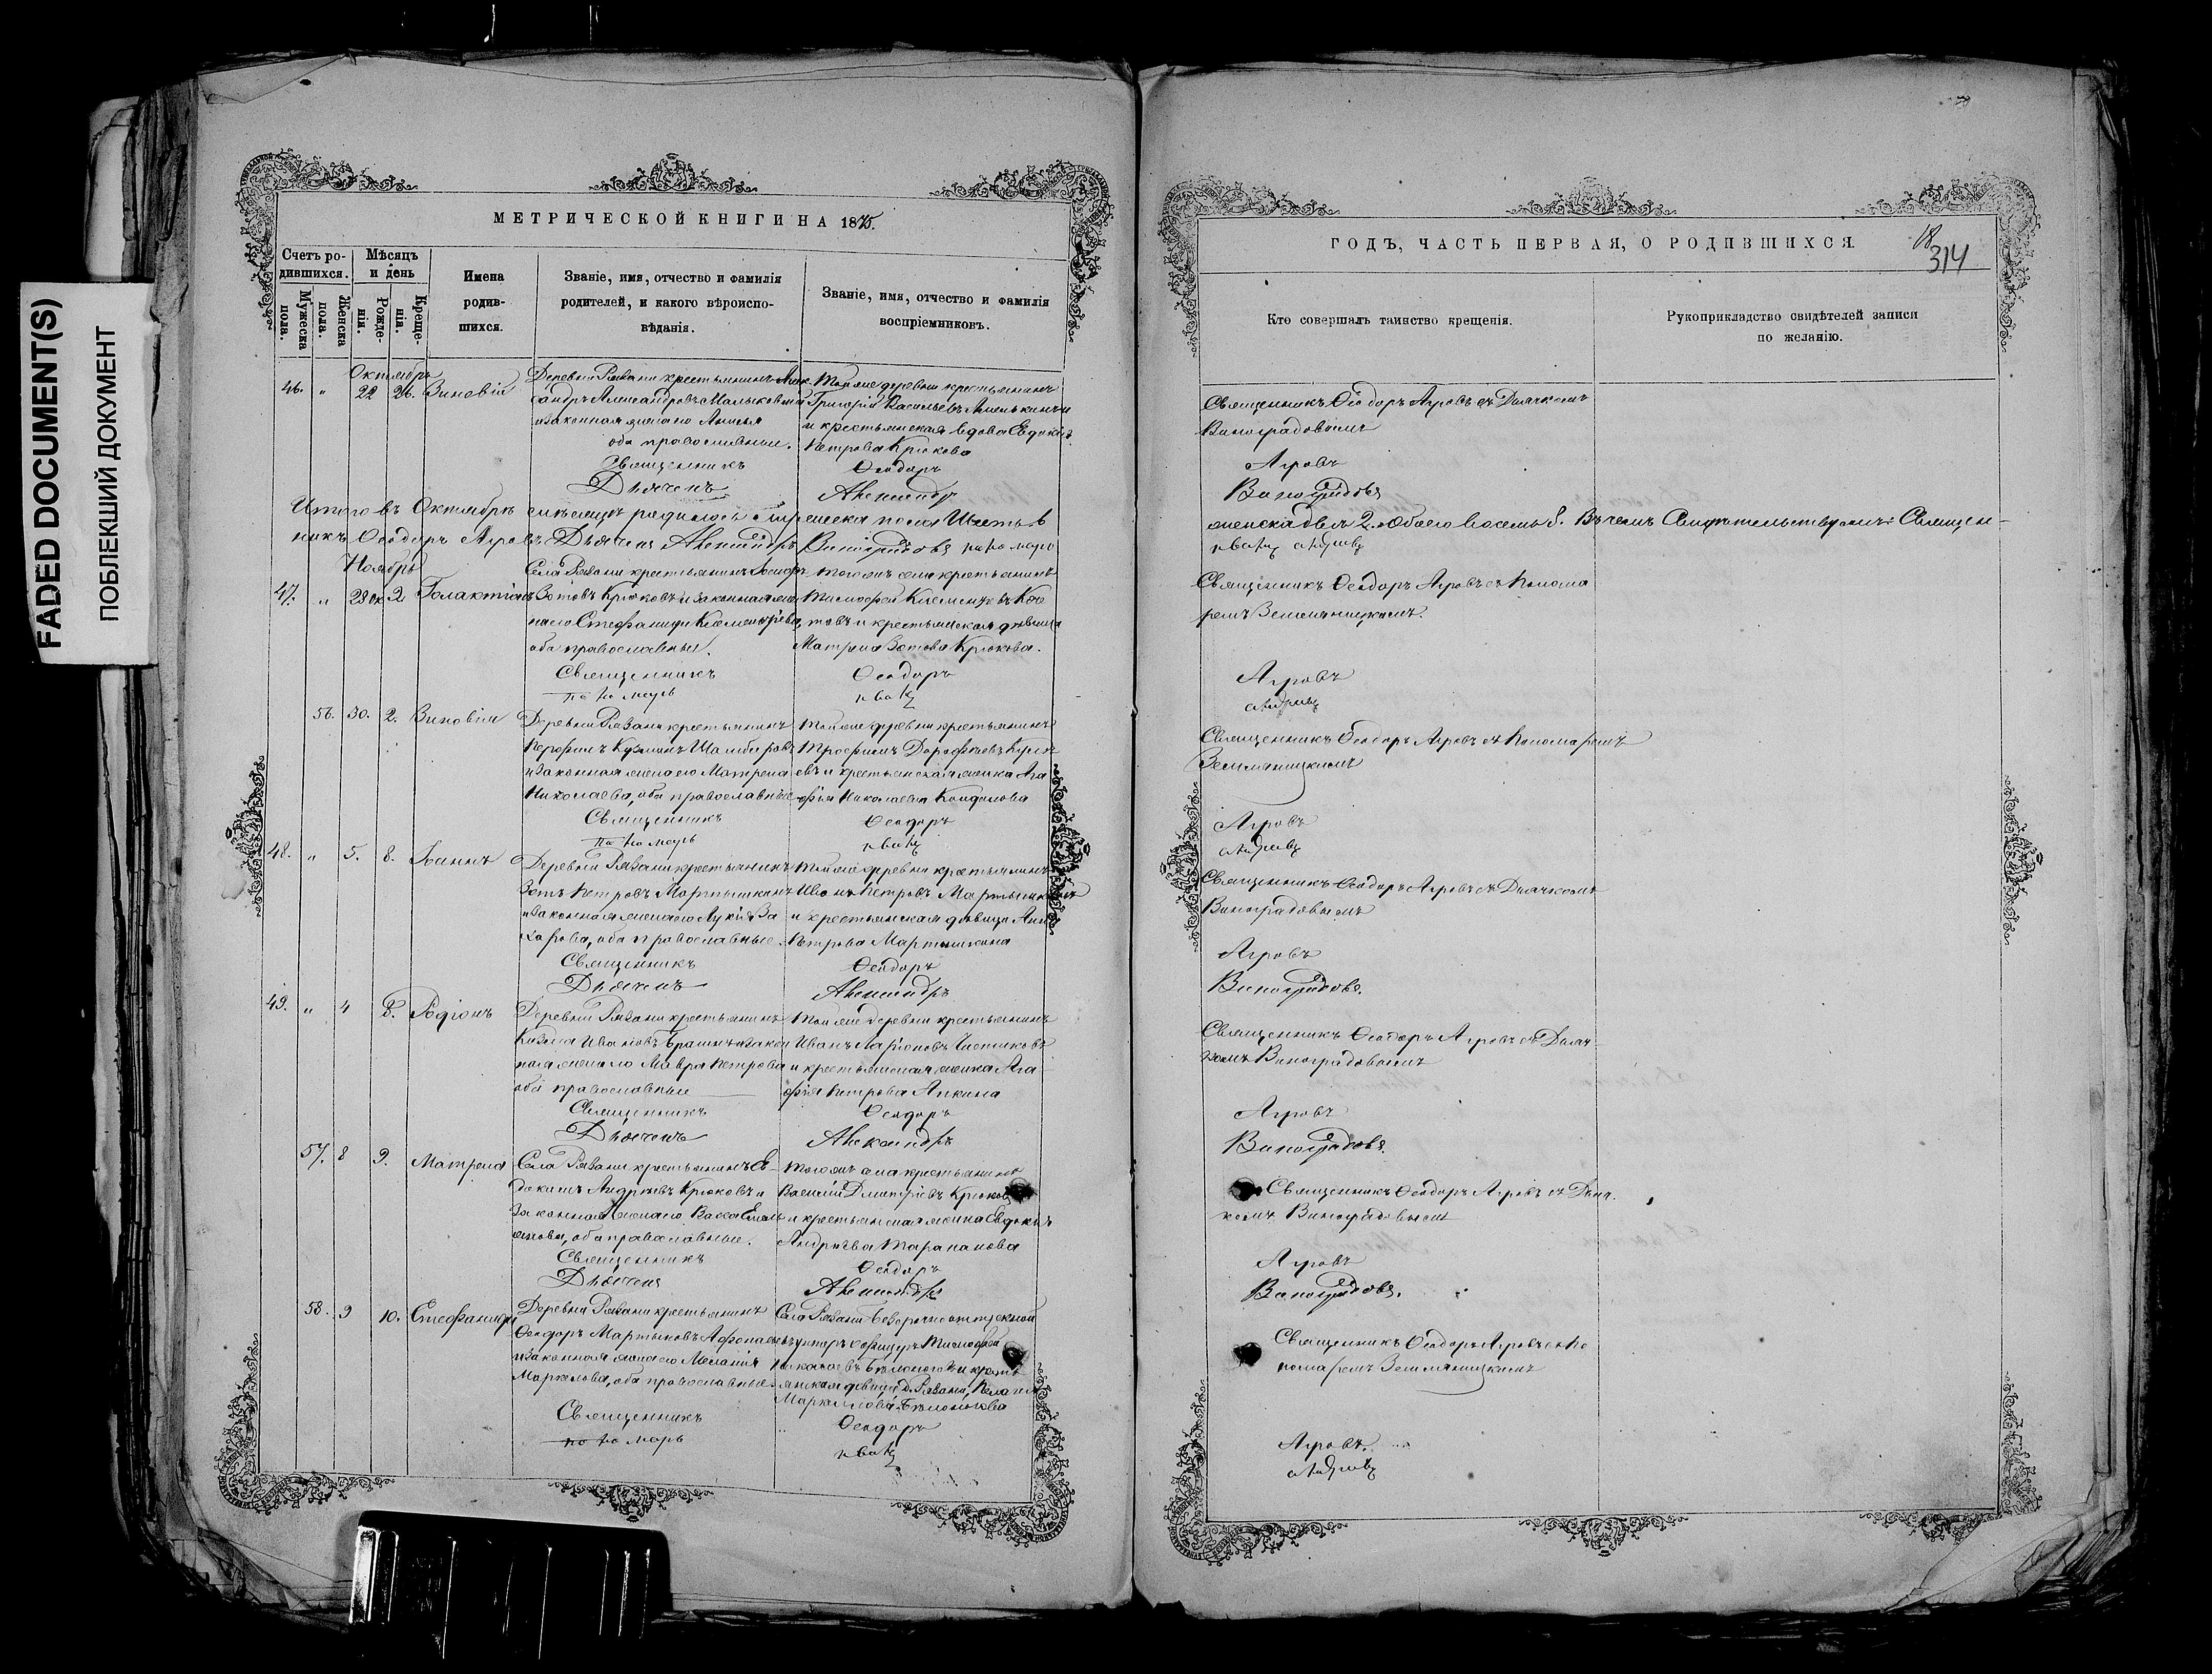 FADED DOCUMENT(S)
ПОБЛЕКШИЙ ДОКУМЕНТ
МЕТРИЧЕСКОЙ КНИГИ НА 1875.
Счетъ ро-
дившихся.
Мужеска
пола.
Женска
пола.
Мѣсяцъ
и день
Рожде-
нія.
Креще-
нія.
Имена
родив-
шихся.
Званіе, имя, отчество и фамилія
родителей, и какого вѣроиспо-
вѣданія.
Званіе, имя, отчество и фамилія
воспріемниковъ.
Октябрь
46. " 22 26. Зиновій
Деревни Рязани крестьянинъ Алек
сандръ Александровъ
и законная жена его Анисья
оба православные.
Священникъ
Дьячекъ
Той же деревни крестьянинъ
Григорій Васильевъ
и крестьянская вдова Евдокія
Петрова Крюкова
Ѳеодоръ
Александръ
Итого въ Октябрѣ мѣсяцѣ родилось мужеска пола шесть 6
никъ Ѳеодоръ Агровъ Дьячекъ Александръ Виноградовъ пономарь
Ноябрь
47. " 28 ок 2 Галактіонъ
Села Рязани крестьянинъ Іосифъ
Зотовъ Крюковъ и законная же
на его Стефанида Климентьева,
оба православные.
Священникъ
пономарь
Того же села крестьянинъ
Тимофей Климентьевъ
товъ и крестьянская дѣвица
Матрена Зотова Крюкова.
Ѳеодоръ
56. 30. 2. Зиновія
Деревни Рязани крестьянинъ
Кузминъ
и законная жена его Матрена
Николаева, оба православные
Священникъ
пономарь
Той же деревни крестьянинъ
Трофимъ Дорофѣевъ
евъ и крестьянская женка Ага
фія Николаева
Ѳеодоръ
48. " 5. 8. Іоаннъ
Деревни Рязани крестьянинъ
Зотъ Петровъ Мартышкинъ
и законная жена его Лукія За
харова, оба православные.
Священникъ
Дьячекъ
Той же деревни крестьянинъ
Иванъ Петровъ Мартышкинъ
и крестьянская дѣвица
Петрова Мартышкина
Ѳеодоръ
Александръ
49. " 4 8. Родіонъ
Деревни Рязани крестьянинъ
Козма Ивановъ и закон
ная жена его Мавра Петрова
оба православные
Священникъ
Дьячекъ
Той же деревни крестьянинъ
Иванъ Ларіоновъ
и крестьянская женка Ага
фія Петрова Апкина
Ѳеодоръ
Александръ
57. 8 9. Матрена
Села Рязани крестьянинъ Ев-
докимъ Андреевъ Крюковъ и
законная жена его Васса
оба православные.
Священникъ
Дьячекъ
Того же села крестьянинъ
Василій Дмитріевъ Крюковъ
и крестьянская женка Евдокія
Андреева Тараканова
Ѳеодоръ
Александръ
58. 9 10. Стефанида
Деревни Рязани крестьянинъ
Ѳеодоръ Мартыновъ
и законная жена его Меланія
Маркелова, оба православные.
Священникъ
пономарь
Села Рязани безсрочно отпускной
унтеръ офицеръ Тимофей
и кресть
янская дѣвица д. Рязани, Пелагія
Маркеллова
Ѳеодоръ
ГОДЪ, ЧАСТЬ ПЕРВАЯ, О РОДИВШИХСЯ.
18
314
Кто совершалъ таинство крещенія.
Рукоприкладство свидѣтелей записи
по желанію.
Священникъ Ѳеодоръ Агровъ съ Дьячкомъ
Виноградовымъ
Агровъ
Виноградовъ
женска два 2. Обоего восемь 8. Въ чемъ Свидѣтельствуемъ: Священ-
Священникъ Ѳеодоръ Агровъ съ Понома
ремъ Земляницкимъ.
Агровъ
Священникъ Ѳеодоръ Агровъ съ Пономаремъ
Земляницкимъ
Агровъ
Священникъ Ѳеодоръ Агровъ съ Дьячкомъ
Виноградовымъ
Агровъ
Виноградовъ.
Священникъ Ѳеодоръ Агровъ съ Дьяч
комъ Виноградовымъ
Агровъ
Виноградовъ.
Священникъ Ѳеодоръ Агровъ съ Дьяч.
комъ Виноградовымъ
Агровъ
Виноградовъ.
Священникъ Ѳеодоръ Агровъ съ По
номаремъ Земляницкимъ
Агровъ.